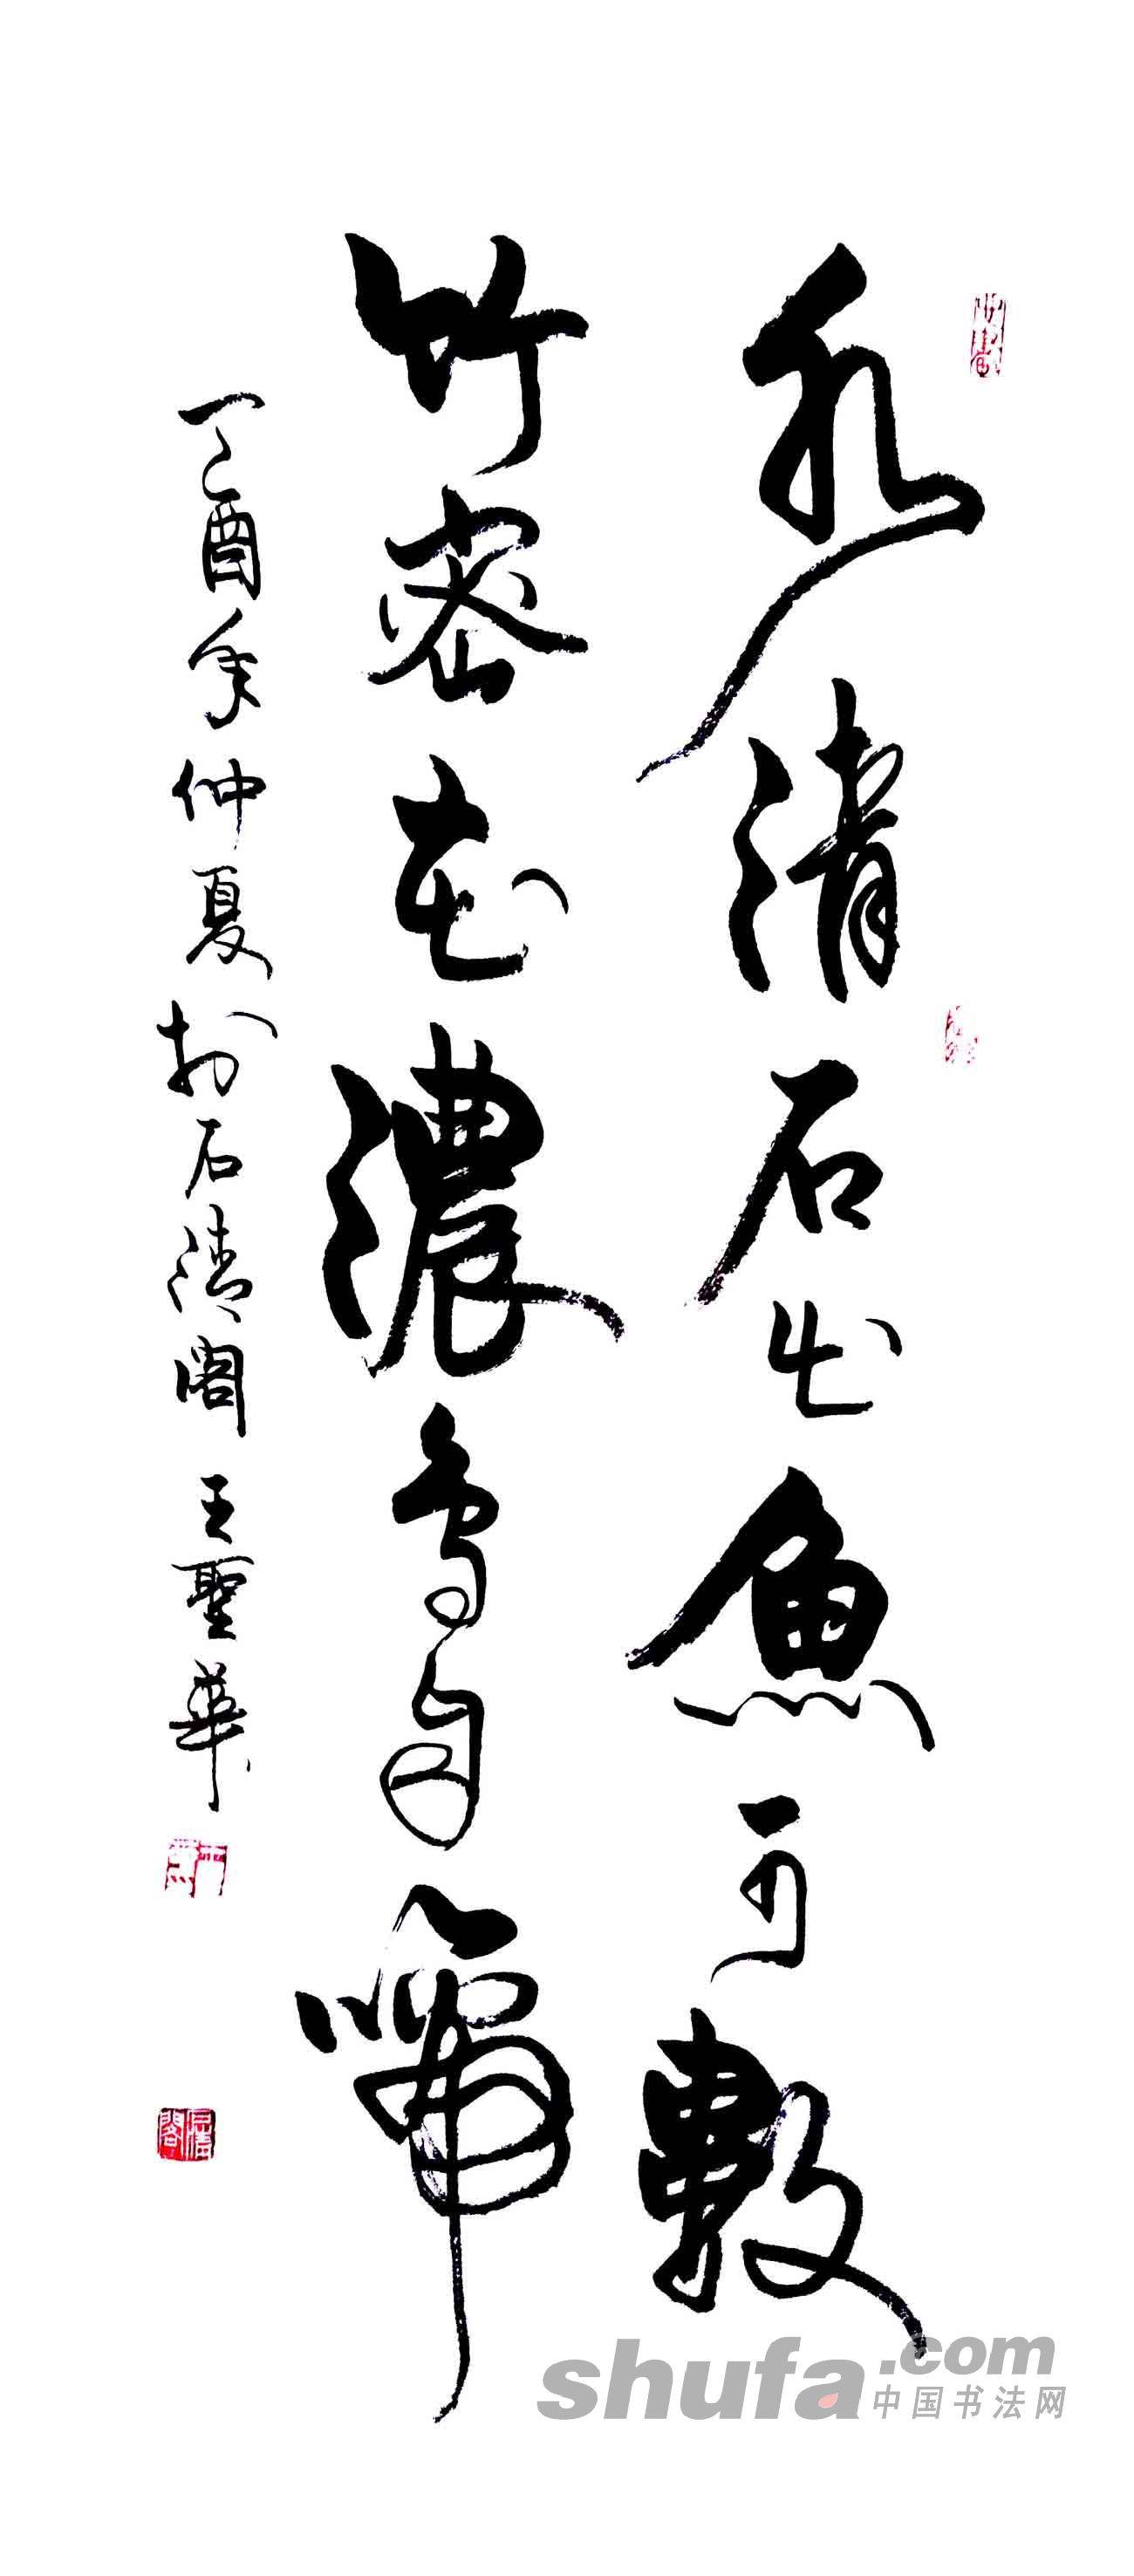 水清石出魚可數
竹密花濃鳥自啼
丁酉年仲夏於石清閣王聖華
shufa.com
中国书法网